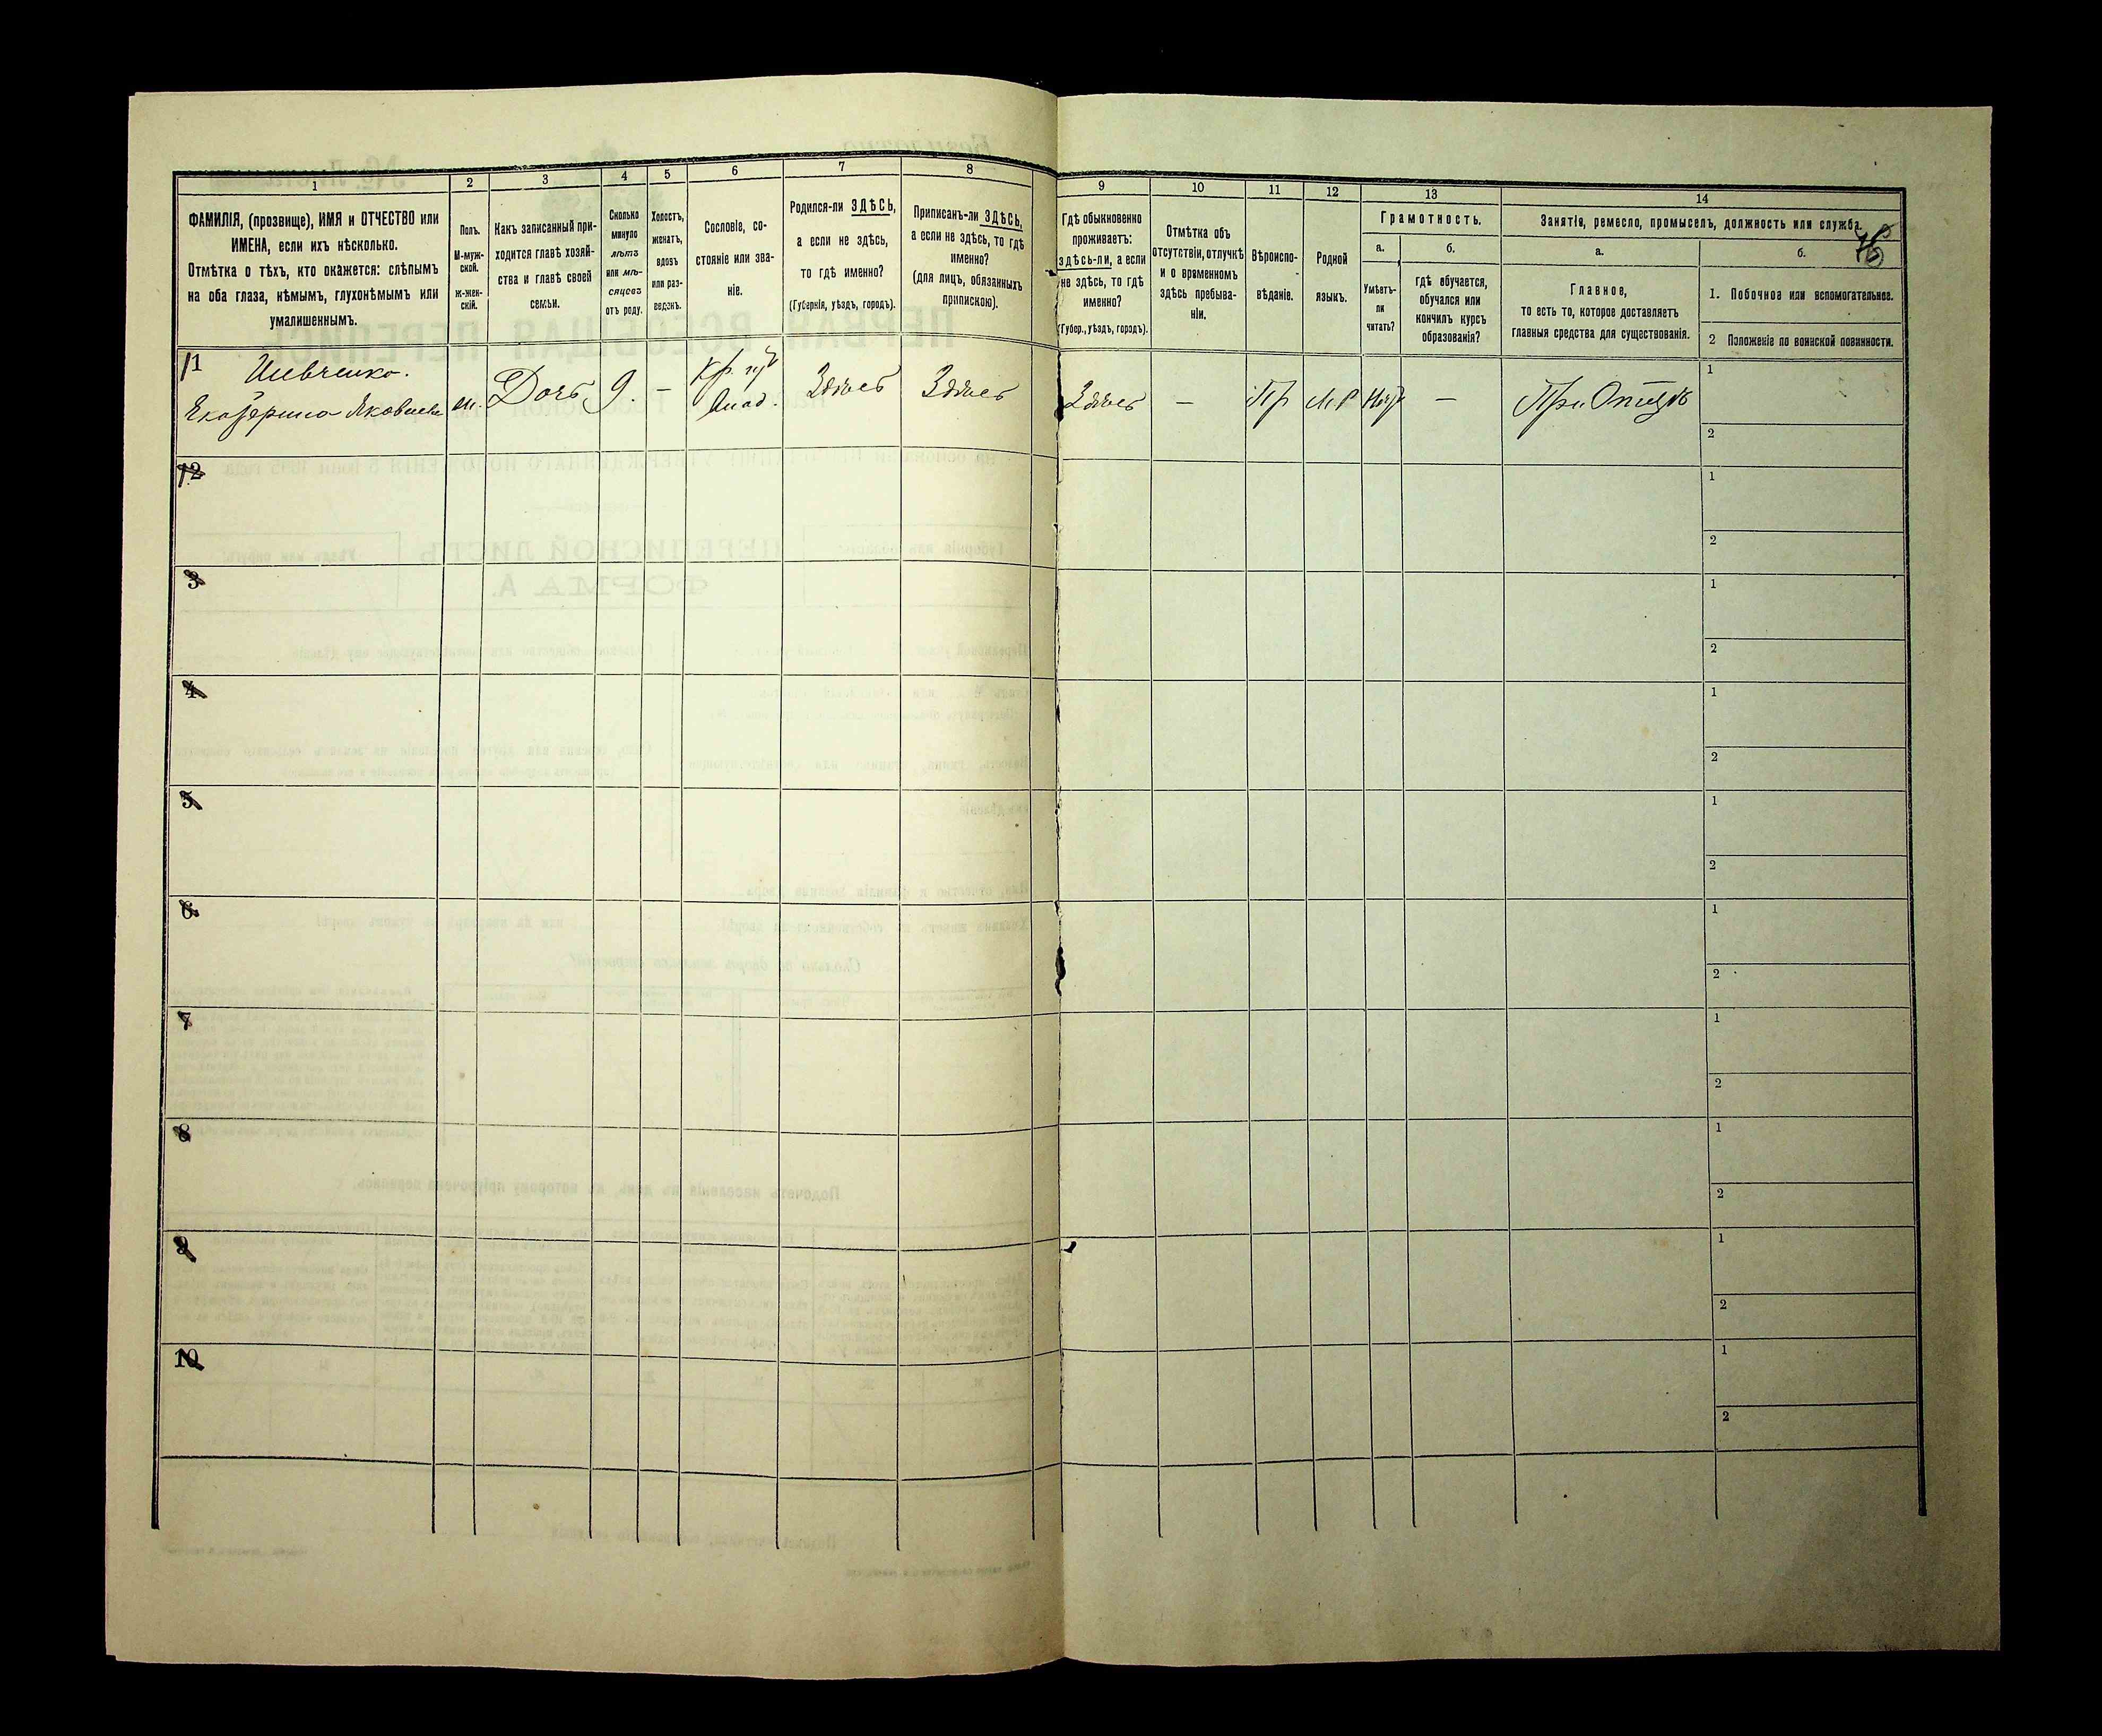 1
2
3
4
5
6
7
8
9
10
11
12
13
14
ФАМИЛІЯ, (прозвище), ИМЯ и ОТЧЕСТВО или
ИМЕНА, если ихъ нѣсколько.
Отмѣтка о тѣхъ, кто окажется: слѣпымъ
на оба глаза, нѣмымъ, глухонѣмымъ или
умалишеннымъ.
Полъ.
М-муж-
ской.
ж-жен-
скій.
Какъ записанный при-
ходится главѣ хозяй-
ства и главѣ своей
семьи.
Сколько
минуло
лѣтъ
или мѣ-
сяцевъ
отъ роду.
Холостъ,
женатъ,
вдовъ
или раз-
веденъ.
Сословіе, со-
стояніе или зва-
ніе.
Родился-ли ЗДѢСЬ,
а если не здѣсь,
то гдѣ именно?
(Губернія, уѣздъ, городъ).
Приписанъ-ли ЗДѢСЬ,
а если не здѣсь, то гдѣ
именно?
(для лицъ, обязанныхъ
припискою).
Гдѣ обыкновенно
проживаетъ:
здѣсь-ли, а если
не здѣсь, то гдѣ
именно?
(Губер., уѣздъ, городъ).
Отмѣтка объ
отсутствіи, отлучкѣ
и о временномъ
здѣсь пребыва-
ніи.
Вѣроиспо-
вѣданіе.
Родной
языкъ.
Грамотность.
а.
Умѣетъ-
ли
читать?
б.
гдѣ обучается,
обучался или
кончилъ курсъ
образованія?
Занятія, ремесло, промыселъ, должность или служба.
а.
Главное,
то есть то, которое доставляетъ
главныя средства для существованія.
б.
1. Побочное или вспомогательное.
2 Положеніе по воинской повинности.
11
Шевченко.
Екатерина Яковлева
ж.
Дочь
9.
—
Здѣсь
Здѣсь
Здѣсь
—
Пр
М.Р
Нѣт
—
При Отцѣ
1
2
12
1
2
3
1
2
4
1
2
5
1
2
6
1
2
7
1
2
8
1
2
9
1
2
10
1
2